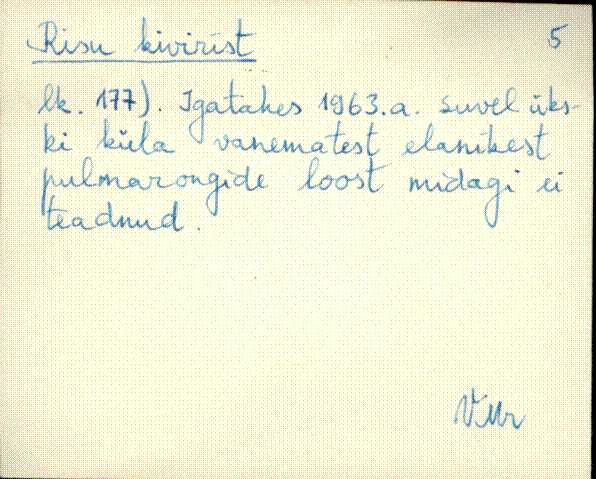 Risu kivirist 5
lk. 177). Igatahes 1963.a. suvel üks-
ki küla vanematest elanikest
pulmarongide loost midagi ei
teadnud.